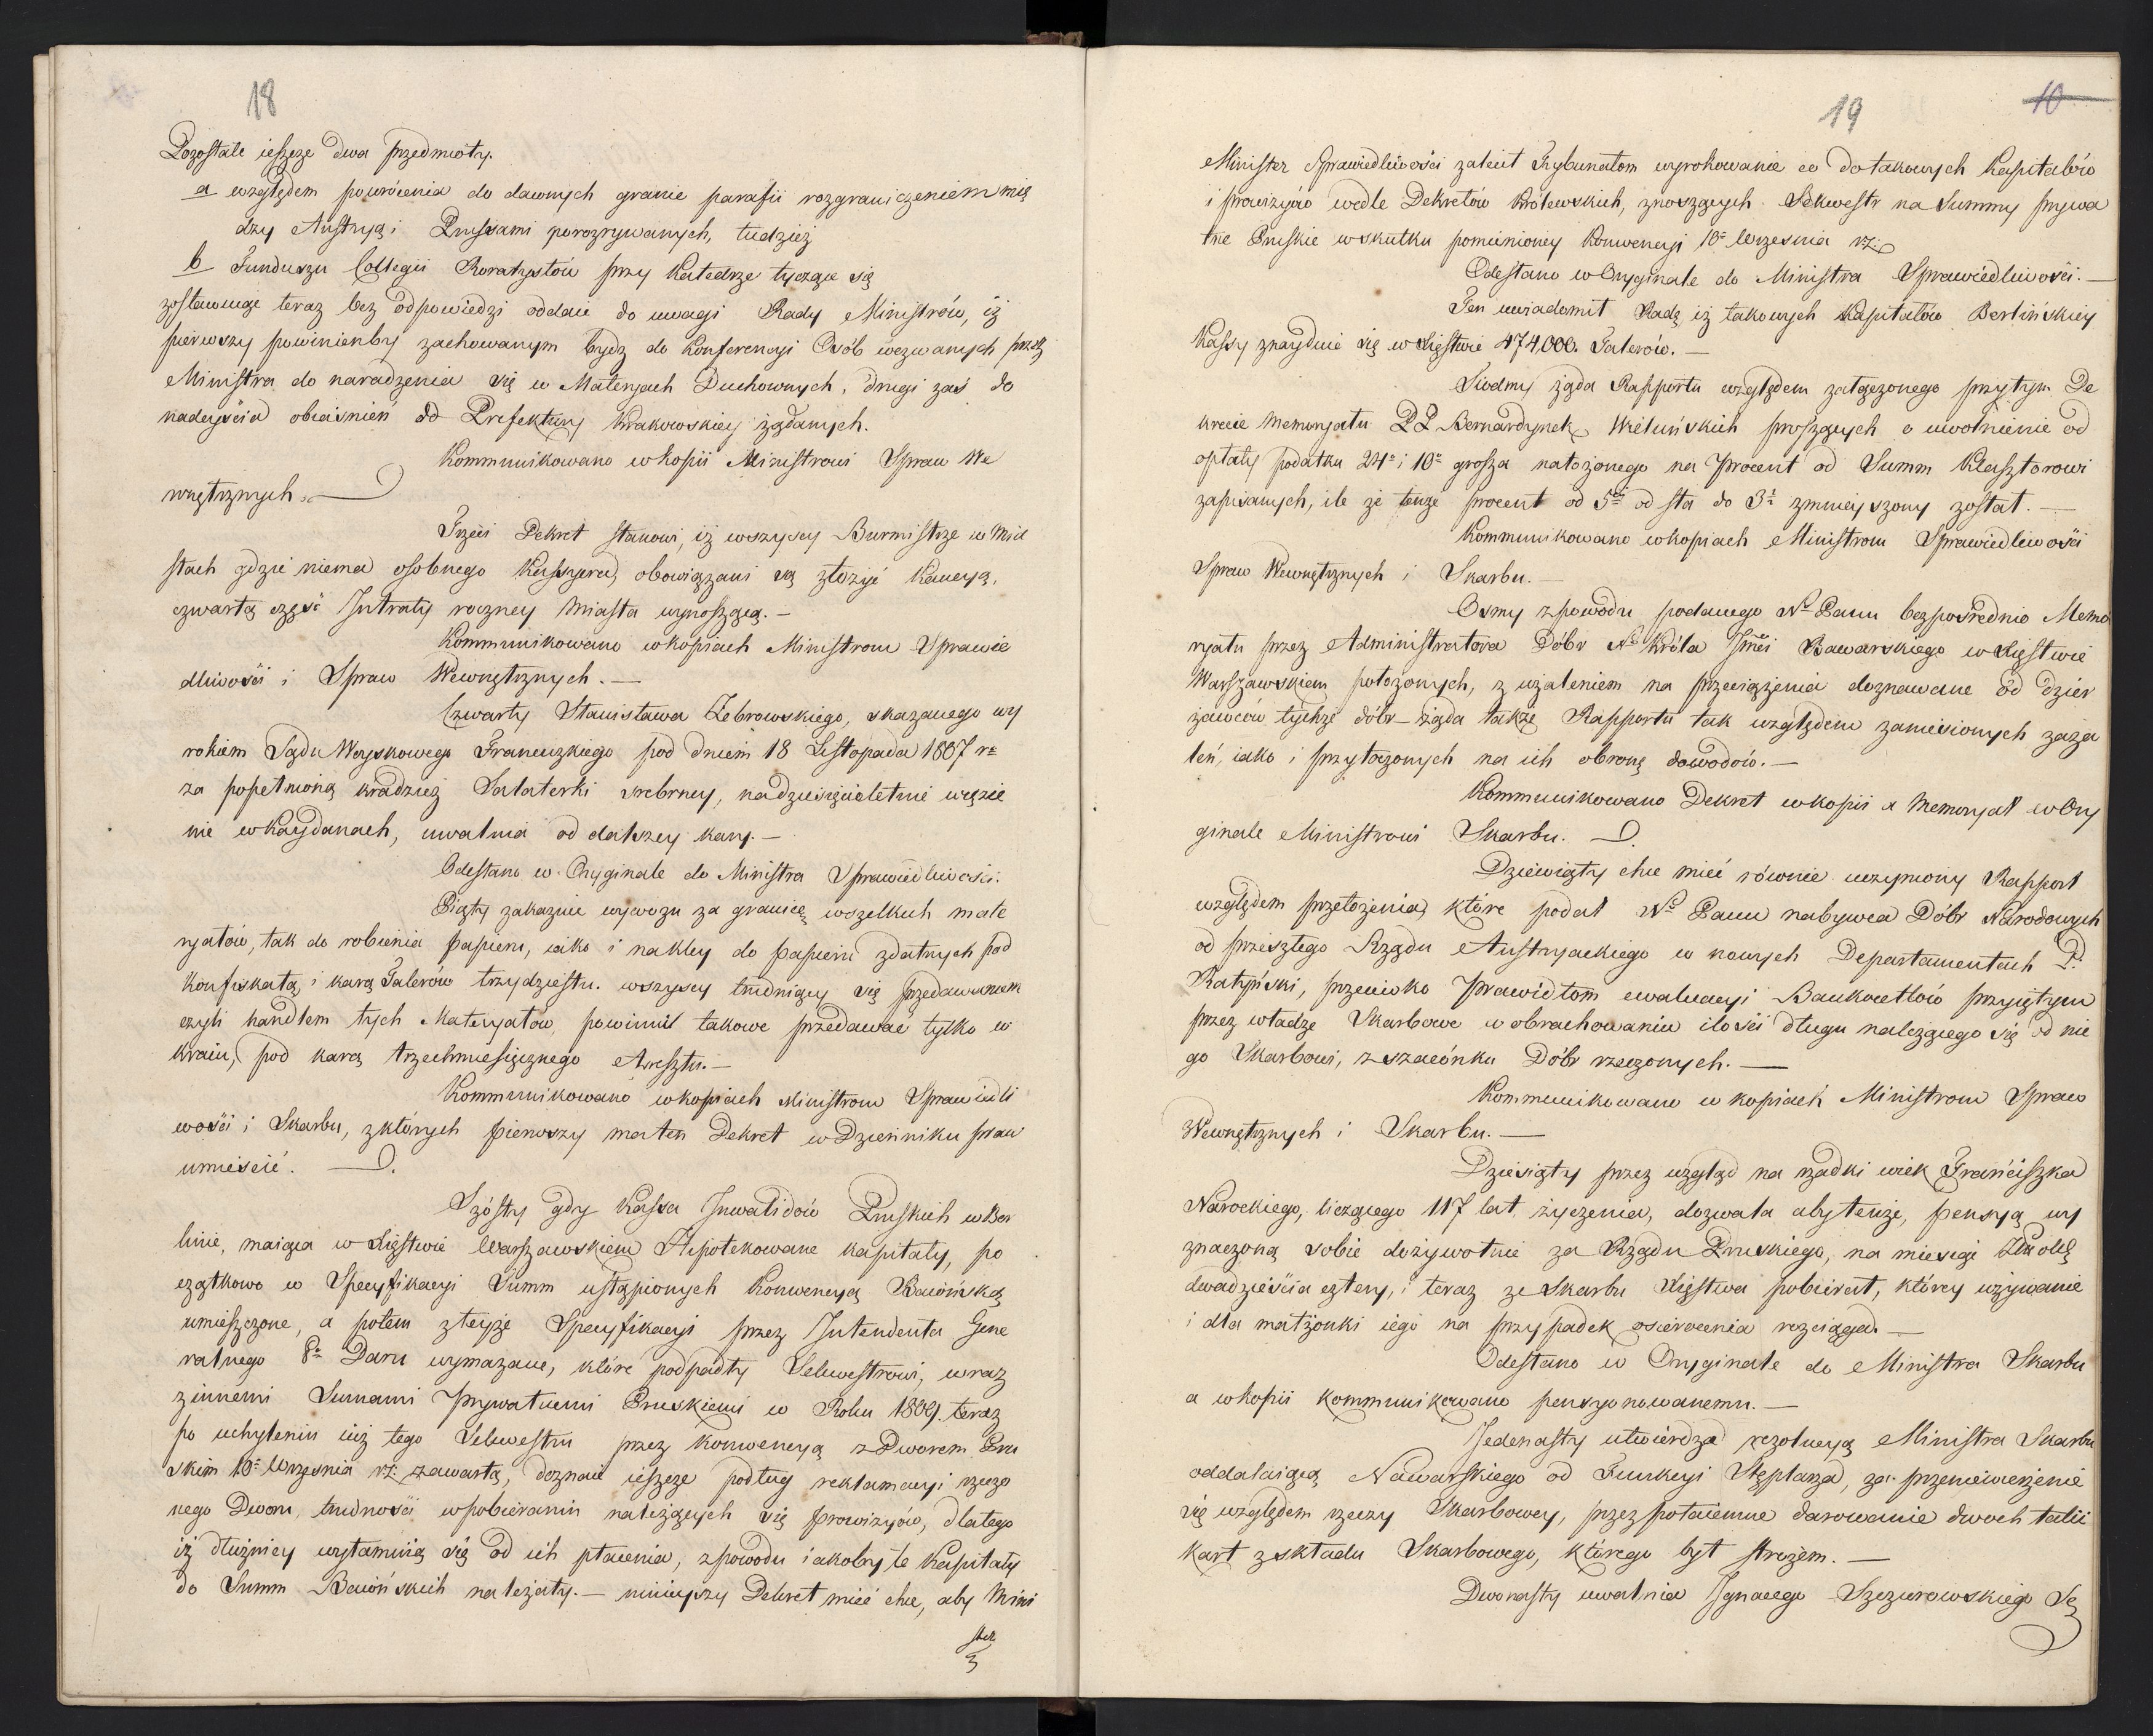 18
Pozostałe ieszcze dwa przedmioty.
a względem powrócenia do dawnych granic parafii rozgraniczeniem mię
dzy Austryą i Prussami porozrywanych, tudzież
b Funduszu Collegii Roratystów przy Katedrze tyczące się
zostawuiąc teraz bez odpowiedzi oddaie do uwagi Rady Ministrów, iż
pierwszy powinienby zachowanym bydz do Konferencyi Osób wezwanych przez
Ministra do naradzenia się w Materyach Duchownych, drugi zaś do
nadeyścia obiaśnień od Prefektury Krakowskiey żądanych.
Kommunikowano w kopii Ministrowi Spraw We
wnętrznych.
Trzeci Dekret stanowi, iż wszyscy Burmistrze w Mia
stach gdzie niema osobnego Kassyera, obowiązani są złożyć Kaucyą,
czwartą część Intraty roczney Miasta wynoszącą. —
Kommunikowano w kopiach Ministrom Sprawie
dliwości i Spraw Wewnętrznych. —
Czwarty Stanisława Żebrowskiego, skazanego wy
rokiem Sądu Woyskowego Francuzkiego pod dniem 18 Listopada 1807 r=
za popełnioną kradzież Salaterki srebrney, na dziesięcioletnie więzie
nie w Kaydanach, uwalnia od dalszey kary. —
Odesłano w Oryginale do Ministra Sprawiedliwości.
Piąty zakazuie wywozu za granicę wszelkich mate
ryałów, tak do robienia papieru, iako i na kley do papieru zdatnych pod
Konfiskatą, i karą Talerów trzydziestu. wszyscy trudniący się przedawaniem
czyli handlem tych Materyałów, powinni takowe przedawać tylko w
kraiu, pod karą trzechmiesięcznego Aresztu. —
Kommunikowano w kopiach Ministrom Sprawiedli
wości i Skarbu, z których pierwszy ma ten Dekret w Dzienniku praw
umieścić. —
Szósty gdy Kassa Inwalidów Pruskich w Ber
linie, maiąca w Xięstwie Warszawskiem Hipotekowane kapitały, po
czątkowo w Specyfikacyi Summ ustąpionych Konwencyą Baiońską
umieszczone, a potem z teyże Specyfikacyi przez Intendenta Gene
ralnego P= Daru wymazane, które podpadły Sekwestrowi, wraz
z innemi Sumami Prywatnemi Pruskiemi w Roku 1809. teraz
po uchyleniu iuż tego Sekwestru przez Konwencyą z Dworem Pru
skim 10= Września r.z. zawartą, doznaie ieszcze podług reklamacyi rzeczo
nego Dworu, trudności, w pobieraniu należących się prowizyów, dlatego
iż dłużnicy wyłamuią się od ich płacenia, z powodu iakoby te Kapitały
do Summ Baiońskich należały. — ninieyszy Dekret mieć chce, aby Mini
ster
19
10
Minister Sprawiedliwości zalecił Trybunałom wyrokowanie co do takowych Kapitałów
i prowizyów wedle Dekretów Królewskich, znoszących Sekwestr na Summy prywa
tne Pruskie w skutku pomienioney Konwencyi 10= Września r.z.
Odesłano w Oryginale do Ministra Sprawiedliwości. —
Ten uwiadomił Radę, iż takowych Kapitałów Berlińskiey
Kassy znayduie się w Xięstwie 474,000. Talerów. —
Siódmy żąda Rapportu względem załączonego przytym De
krecie Memoryału PP Bernardynek Wieluńskich proszących o uwolnienie od
opłaty podatku 24= i 10= grosza nałożonego na Procent od Summ Klasztorowi
zapisanych, ile że tenże procent od 5= od sta do 3= zmnieyszony został. —
Kommunikowano w kopiach Ministrom Sprawiedliwości
Spraw Wewnętrznych i Skarbu. —
Osmy z powodu podanego N= Panu bezpośrednio Memo
ryału przez Administratora Dóbr N= Króla Jmci Bawarskiego w Xięstwie
Warszawskiem położonych, z użaleniem na przeciążenia doznawane od dzier
żawców tychże dóbr — żąda także Rapportu tak względem zaniesionych zaża
leń, iako i przytoczonych na ich obronę dowodów. —
Kommunikowano Dekret w kopii a Memoryał w Ory
ginale Ministrowi Skarbu. —
Dziewiąty chce mieć równie uczyniony Rapport
względem przełożenia, które podał N= Panu nabywca Dóbr Narodowych
od przeszłego Rządu Austryackiego w nowych Departamentach P.
Ratyński, przeciwko Prawidłom ewaluacyi Bankocetlów przyiętym
przez władze Skarbowe w obrachowaniu ilości długu należącego się od nie
go Skarbowi, z szacunku Dóbr rzeczonych. —
Kommunikowano w kopiach Ministrom Spraw
Wewnętrznych i Skarbu. —
Dziesiąty przez wzgląd na rzadki wiek Franciszka
Narockiego, liczącego 117 lat życzenia, dozwala aby tenże, pensyą wy
znaczoną sobie dożywotnie za Rządu Pruskiego, na miesiąc
dwadzieścia cztery, i teraz ze Skarbu Xięstwa pobierał, którey używanie
i dla małżonki iego na przypadek osierocenia rozciąga. —
Odesłano w Oryginale do Ministra Skarbu
a w kopii kommunikowano pensyonowanemu. —
Jedenasty utwierdza rezolucyą Ministra Skarbu
oddalaiącą Nawarskiego od Funkcyi Stęplarza, za przeniewierzenie
się względem rzeczy Skarbowey, przez potaiemne darowanie dwoch talii
kart z składu Skarbowego, którego był strożem. —
Dwonasty uwalnia Ignacego Szczurowskiego Sę